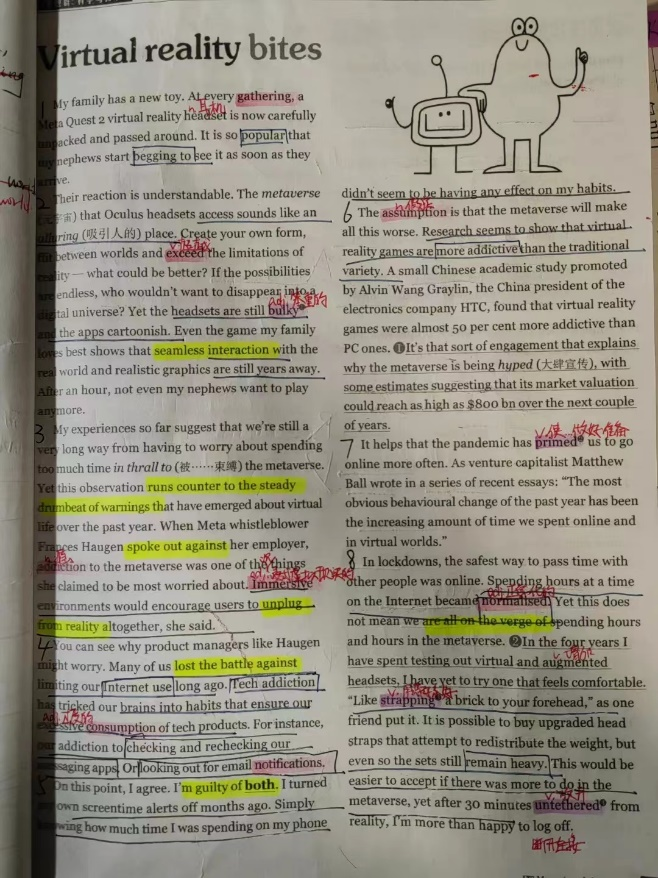 Virtual reality bites
1 My family has a new toy. At every gathering, a
n.耳机
Meta Quest 2 virtual reality headset is now carefully
unpacked and passed around. It is so popular that
my nephews start begging to see it as soon as they
arrive.
2 Their reaction is understandable. The metaverse
(元宇宙) that Oculus headsets access sounds like an
alluring (吸引人的) place. Create your own form,
flit between worlds and exceed the limitations of
reality — what could be better? If the possibilities
are endless, who wouldn't want to disappear into a
digital universe? Yet the headsets are still bulky
and the apps cartoonish. Even the game my family
loves best shows that seamless interaction with the
real world and realistic graphics are still years away.
After an hour, not even my nephews want to play
anymore.
3 My experiences so far suggest that we're still a
very long way from having to worry about spending
too much time in thrall to (被……束缚) the metaverse.
Yet this observation runs counter to the steady
drumbeat of warnings that have emerged about virtual
life over the past year. When Meta whistleblower
Frances Haugen spoke out against her employer,
addiction to the metaverse was one of the things
she claimed to be most worried about. Immersive
environments would encourage users to unplug
from reality altogether, she said.
4 You can see why product managers like Haugen
might worry. Many of us lost the battle against
limiting our Internet use long ago. Tech addiction
has tricked our brains into habits that ensure our
excessive consumption of tech products. For instance,
our addiction to checking and rechecking our
messaging apps. Or looking out for email notifications.
5 On this point, I agree. I'm guilty of both. I turned
my own screentime alerts off months ago. Simply
knowing how much time I was spending on my phone
didn't seem to be having any effect on my habits.
6 The assumption is that the metaverse will make
all this worse. Research seems to show that virtual
reality games are more addictive than the traditional
variety. A small Chinese academic study promoted
by Alvin Wang Graylin, the China president of the
electronics company HTC, found that virtual reality
games were almost 50 per cent more addictive than
PC ones. ❶It's that sort of engagement that explains
why the metaverse is being hyped (大肆宣传), with
some estimates suggesting that its market valuation
could reach as high as $800 bn over the next couple
of years.
v.使…做好准备
7 It helps that the pandemic has primed us to go
online more often. As venture capitalist Matthew
Ball wrote in a series of recent essays: "The most
obvious behavioural change of the past year has been
the increasing amount of time we spent online and
in virtual worlds."
8 In lockdowns, the safest way to pass time with
other people was online. Spending hours at a time
on the Internet became normalised. Yet this does
not mean we are all on the verge of spending hours
and hours in the metaverse. ❷In the four years I
have spent testing out virtual and augmented
headsets, I have yet to try one that feels comfortable.
"Like strapping a brick to your forehead," as one
friend put it. It is possible to buy upgraded head
straps that attempt to redistribute the weight, but
even so the sets still remain heavy. This would be
easier to accept if there was more to do in the
metaverse, yet after 30 minutes untethered from
reality, I'm more than happy to log off.